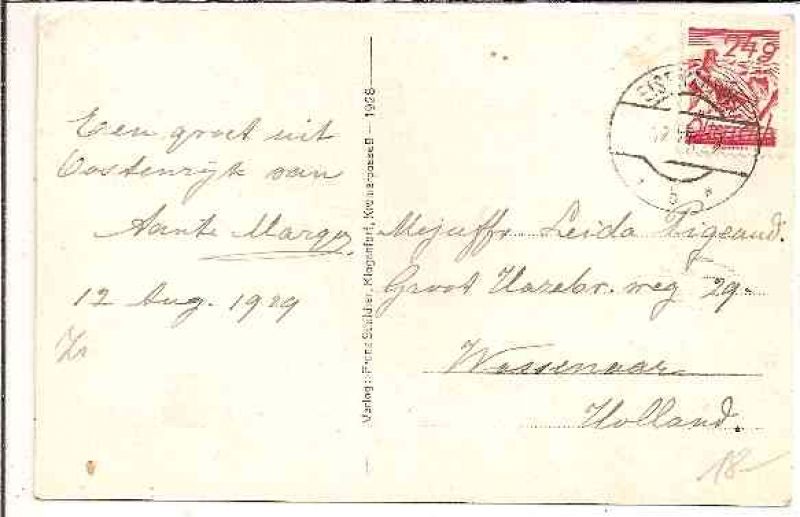 Een groet uit
Oostenrijk van
Tante Margo
12 Aug. 1929
Verlag: Franz Schilcher, Klagenfurt, Kramergasse 8 — 1928
24g
Mejuffr Leida Pigeaud.
Groot Hazebr. weg 29.
Wassenaar
Holland.
18-